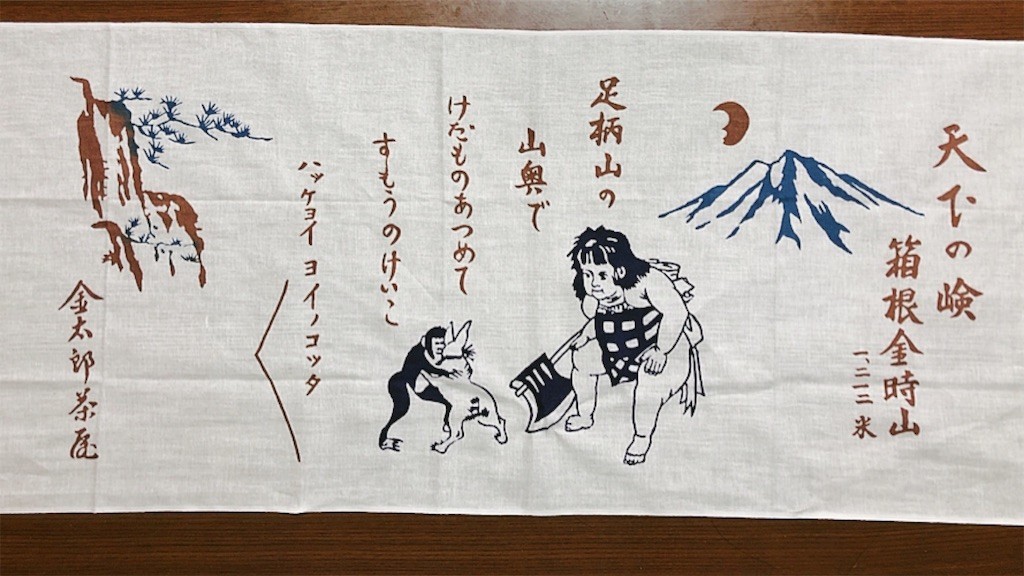 天下の険
箱根金時山
一、二一二米
足柄山の
山奥で
けだものあつめて
すもうのけいこ
ハッケヨイ ヨイノコッタ
金太郎茶屋